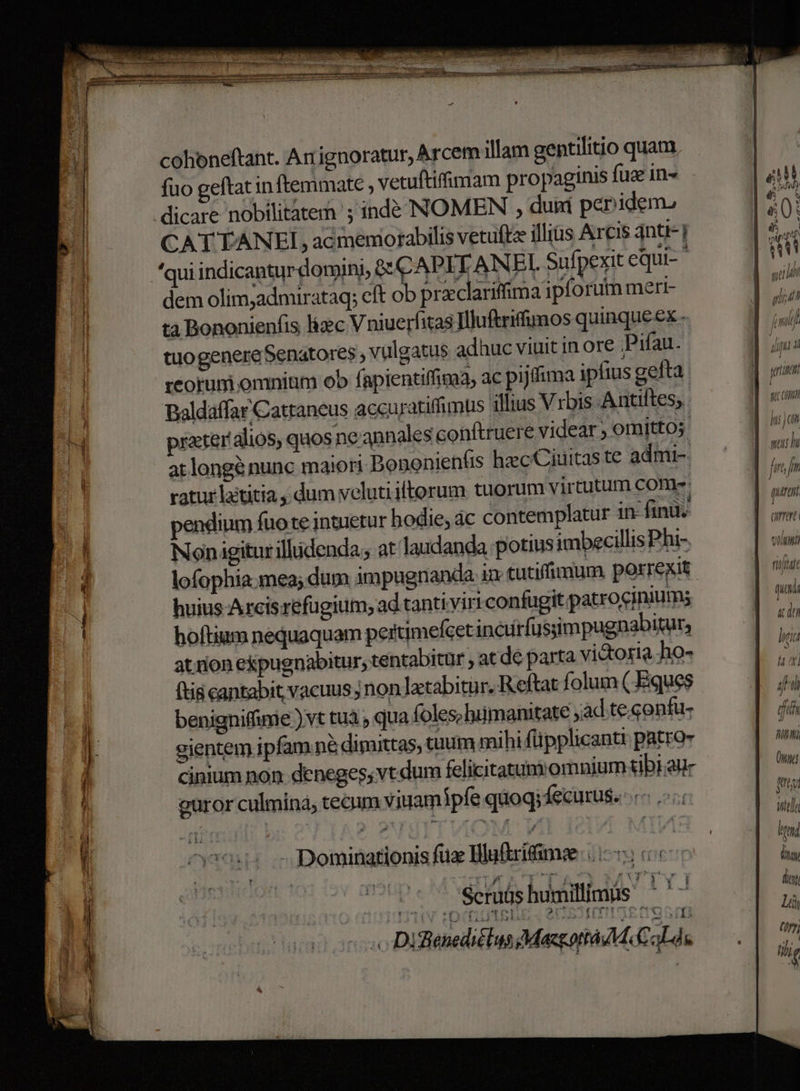 cohoneſtant. An ignoratur, Arcem illam gentilitio quam
ſuo geſtat in ſtemmate, vetuſtiſſimam propaginis ſuæ in-
dicare nobilitatem; indè NOMEN, dum per idem
CATTANEI, ac memorabilis vetuſtæ illius Arcis anti-
qui indicantur domini, & CAPITANEI. Suſpexit equi-
dem olim, admirataq; eſt ob præclariſſima ipſorum meri-
ta Bononienſis hæc Vniuerſitas Illuſtriſſimos quinque ex
tuo genere Senatores, vulgatus adhuc viuit in ore Piſau-
reorum omnium ob ſapientiſſima, ac pijſſima ipſius geſta
Baldaſſar Cattaneus accuratiſſimus illius Vrbis Antiſtes,
præter alios, quos ne annales conſtruere videar, omitto;
at longè nunc maiori Bononienſis hæc Ciuitas te admi-
ratur lætitia, dum veluti iſtorum tuorum virtutum com-
pendium ſuo te intuetur hodie, ac contemplatur in ſinu.
Non igitur illudenda, at laudanda potius imbecillis Phi-
loſophia mea, dum impugnanda in tutiſſimum porrexit
huius Arcis refugium, ad tanti viri confugit patrocinium;
hoſtium nequaquam pertimeſcet incurſus, impugnabitur,
at non expugnabitur, tentabitur, at de parta victoria ho-
ſtis cantabit vacuus, non lætabitur. Reſtat ſolum (Eques
benigniſſime) vt tua, qua ſoles, humanitate, ad te confu-
gientem ipſam nè dimittas, tuum mihi ſupplicanti patro-
cinium non deneges, vt dum felicitatum omnium tibi au-
guror culmina, tecum viuam ipſe quoq; ſecurus.
Dominationis ſuæ Illuſtriſſimæ
Seruus humillimus
D. Benedictus Mazzotta M. C. Lds